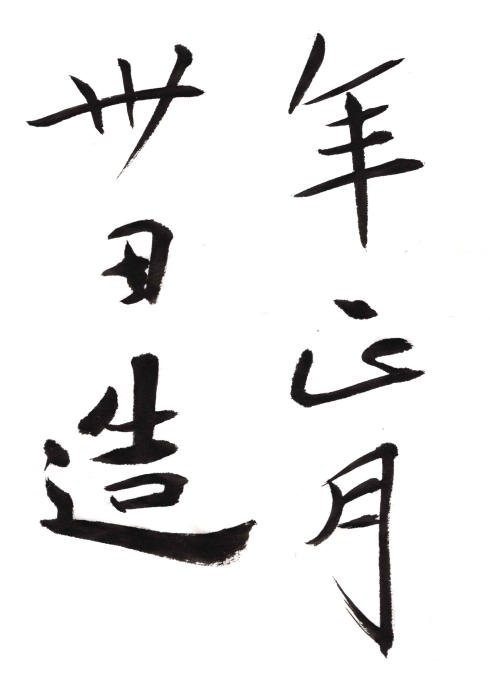 年正月
卅日造